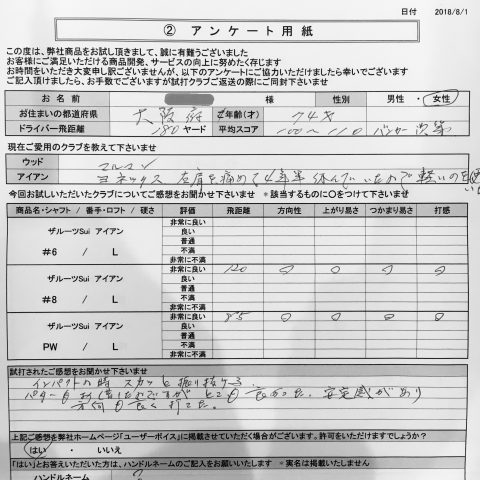 日付 2018/8/1
② アンケート用紙
この度は、弊社商品をお試し頂きまして、誠に有難うございました
お客様にご満足いただける商品開発、サービスの向上に努めたく存じます
お時間をいただき大変申し訳ございませんが、以下のアンケートにご協力いただけましたら幸いでございます
ご記入頂きましたら、お手数でございますが試打クラブご返送の際にご同封下さいませ
お名前 様 性別 男性 ・ 女性
お住まいの都道府県 大阪府 年齢(才) 74才
ドライバー飛距離 180 ヤード 平均スコア 100〜110 バンカー次第
現在ご愛用のクラブを教えて下さいませ
ウッド マルマン
アイアン ヨネックス 右肩を痛めて4年半休んでいたので軽いのを
今回お試しいただいたクラブについてご感想をお聞かせ下さいませ ※該当するものに〇をつけて下さいませ
商品名・シャフト / 番手・ロフト / 硬さ 評価 飛距離 方向性 上がり易さ つかまり易さ 打感
ザルーツSui アイアン
#6 / L
非常に良い
良い
普通
不満
非常に不満
ザルーツSui アイアン
#8 / L
非常に良い 120 〇 〇 〇 〇
良い
普通
不満
非常に不満
ザルーツSui アイアン
PW / L
非常に良い 85 〇 〇 〇 〇
良い
普通
不満
非常に不満
試打されたご感想をお聞かせ下さいませ
インパクトの時 スカッと振り抜ける
とても良かった、安定感があり
方向も良く打てた。
上記ご感想を弊社ホームページ「ユーザーボイス」に掲載させていただく場合がございます。許可をいただけますでしょうか?
はい ・ いいえ
「はい」とお答えいただいた方は、ハンドルネームのご記入をお願いいたします ※実名は掲載いたしません
ハンドルネーム